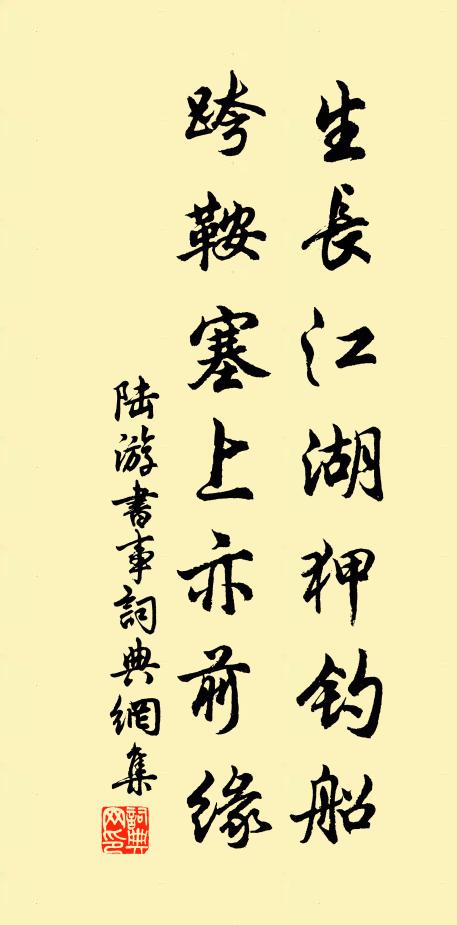 生長江湖狎釣船
跨鞍塞上亦前緣
陸游書事詞典網集
詞典网印